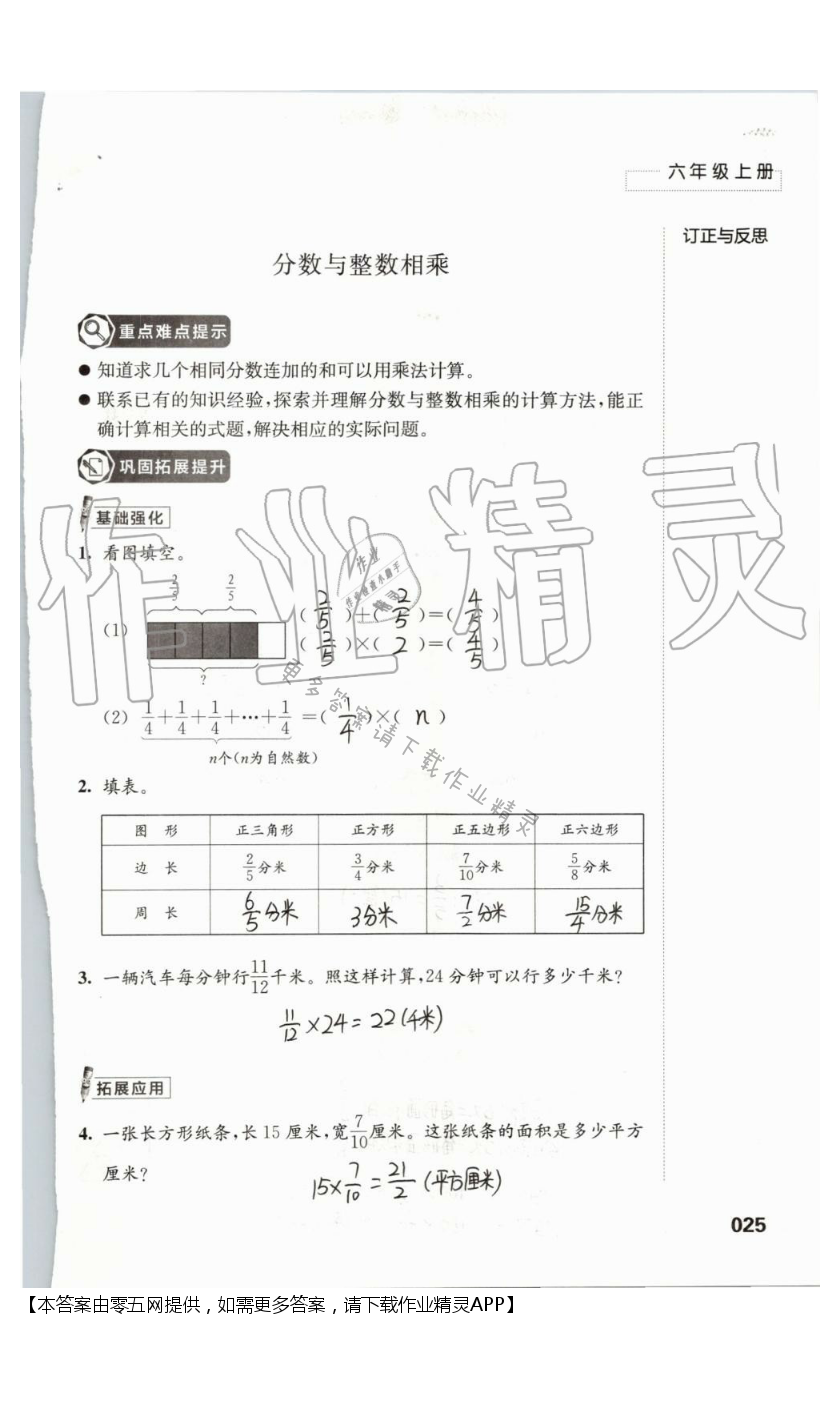 六年级上册
订正与反思
分数与整数相乘
重点难点提示
● 知道求几个相同分数连加的和可以用乘法计算。
● 联系已有的知识经验,探索并理解分数与整数相乘的计算方法,能正
确计算相关的式题,解决相应的实际问题。
巩固拓展提升
基础强化
1. 看图填空。
2/5 2/5
(1) ( 2/5 )+( 2/5 )=( 4/5 )
( 2/5 )×( 2 )=( 4/5 )
?
(2) 1/4+1/4+1/4+…+1/4 =( 1/4 )×( n )
n个(n为自然数)
2. 填表。
图 形 正三角形 正方形 正五边形 正六边形
边 长 2/5分米 3/4分米 7/10分米 5/8分米
周 长 6/5分米 3分米 7/2分米 15/4分米
3. 一辆汽车每分钟行11/12千米。照这样计算,24分钟可以行多少千米?
11/12×24=22(千米)
拓展应用
4. 一张长方形纸条,长15厘米,宽7/10厘米。这张纸条的面积是多少平方
厘米?
15×7/10=21/2(平方厘米)
025
作业精灵
作业
作业检查小助手
更多答案请下载作业精灵
【本答案由零五网提供，如需更多答案，请下载作业精灵APP】